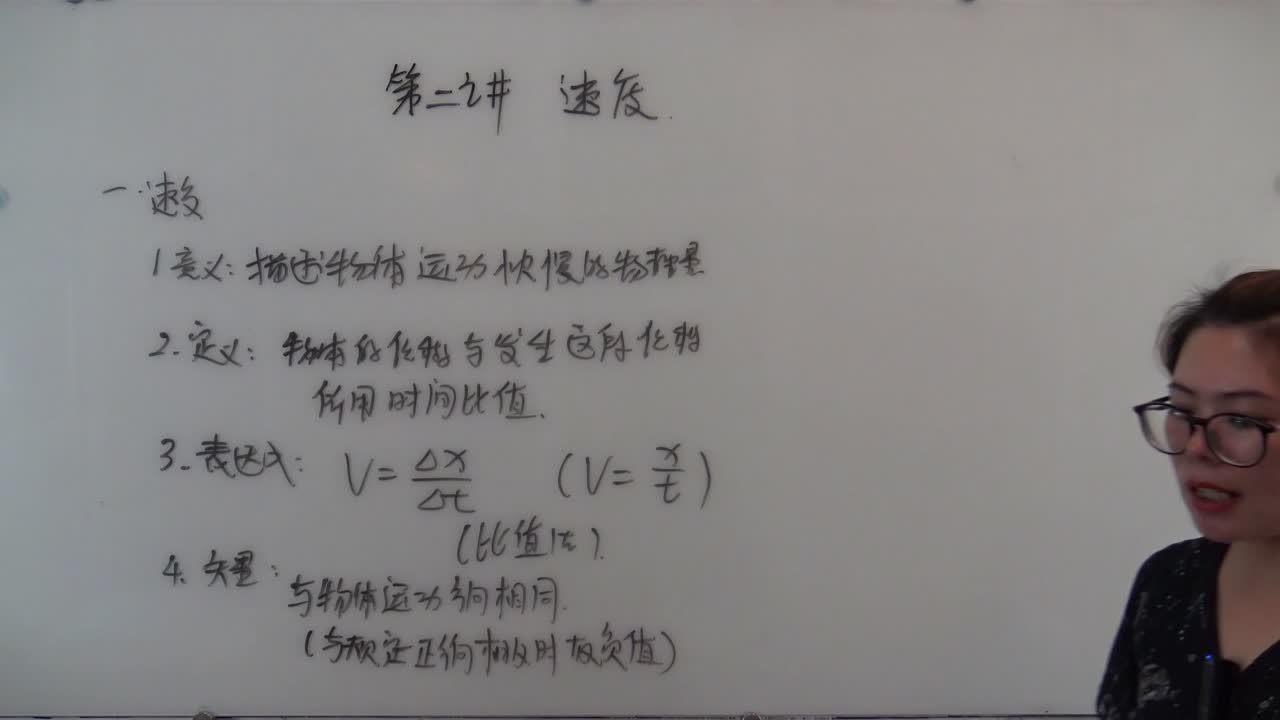 第二讲 速度
一.速度
1 意义:描述物体运动快慢的物理量
2.定义:物体的位移与发生这段位移
所用时间比值.
3.表达式: V=Δx/Δt (V=x/t)
(比值法).
4.矢量:
与物体运动方向相同.
(与规定正方向相反时取负值)